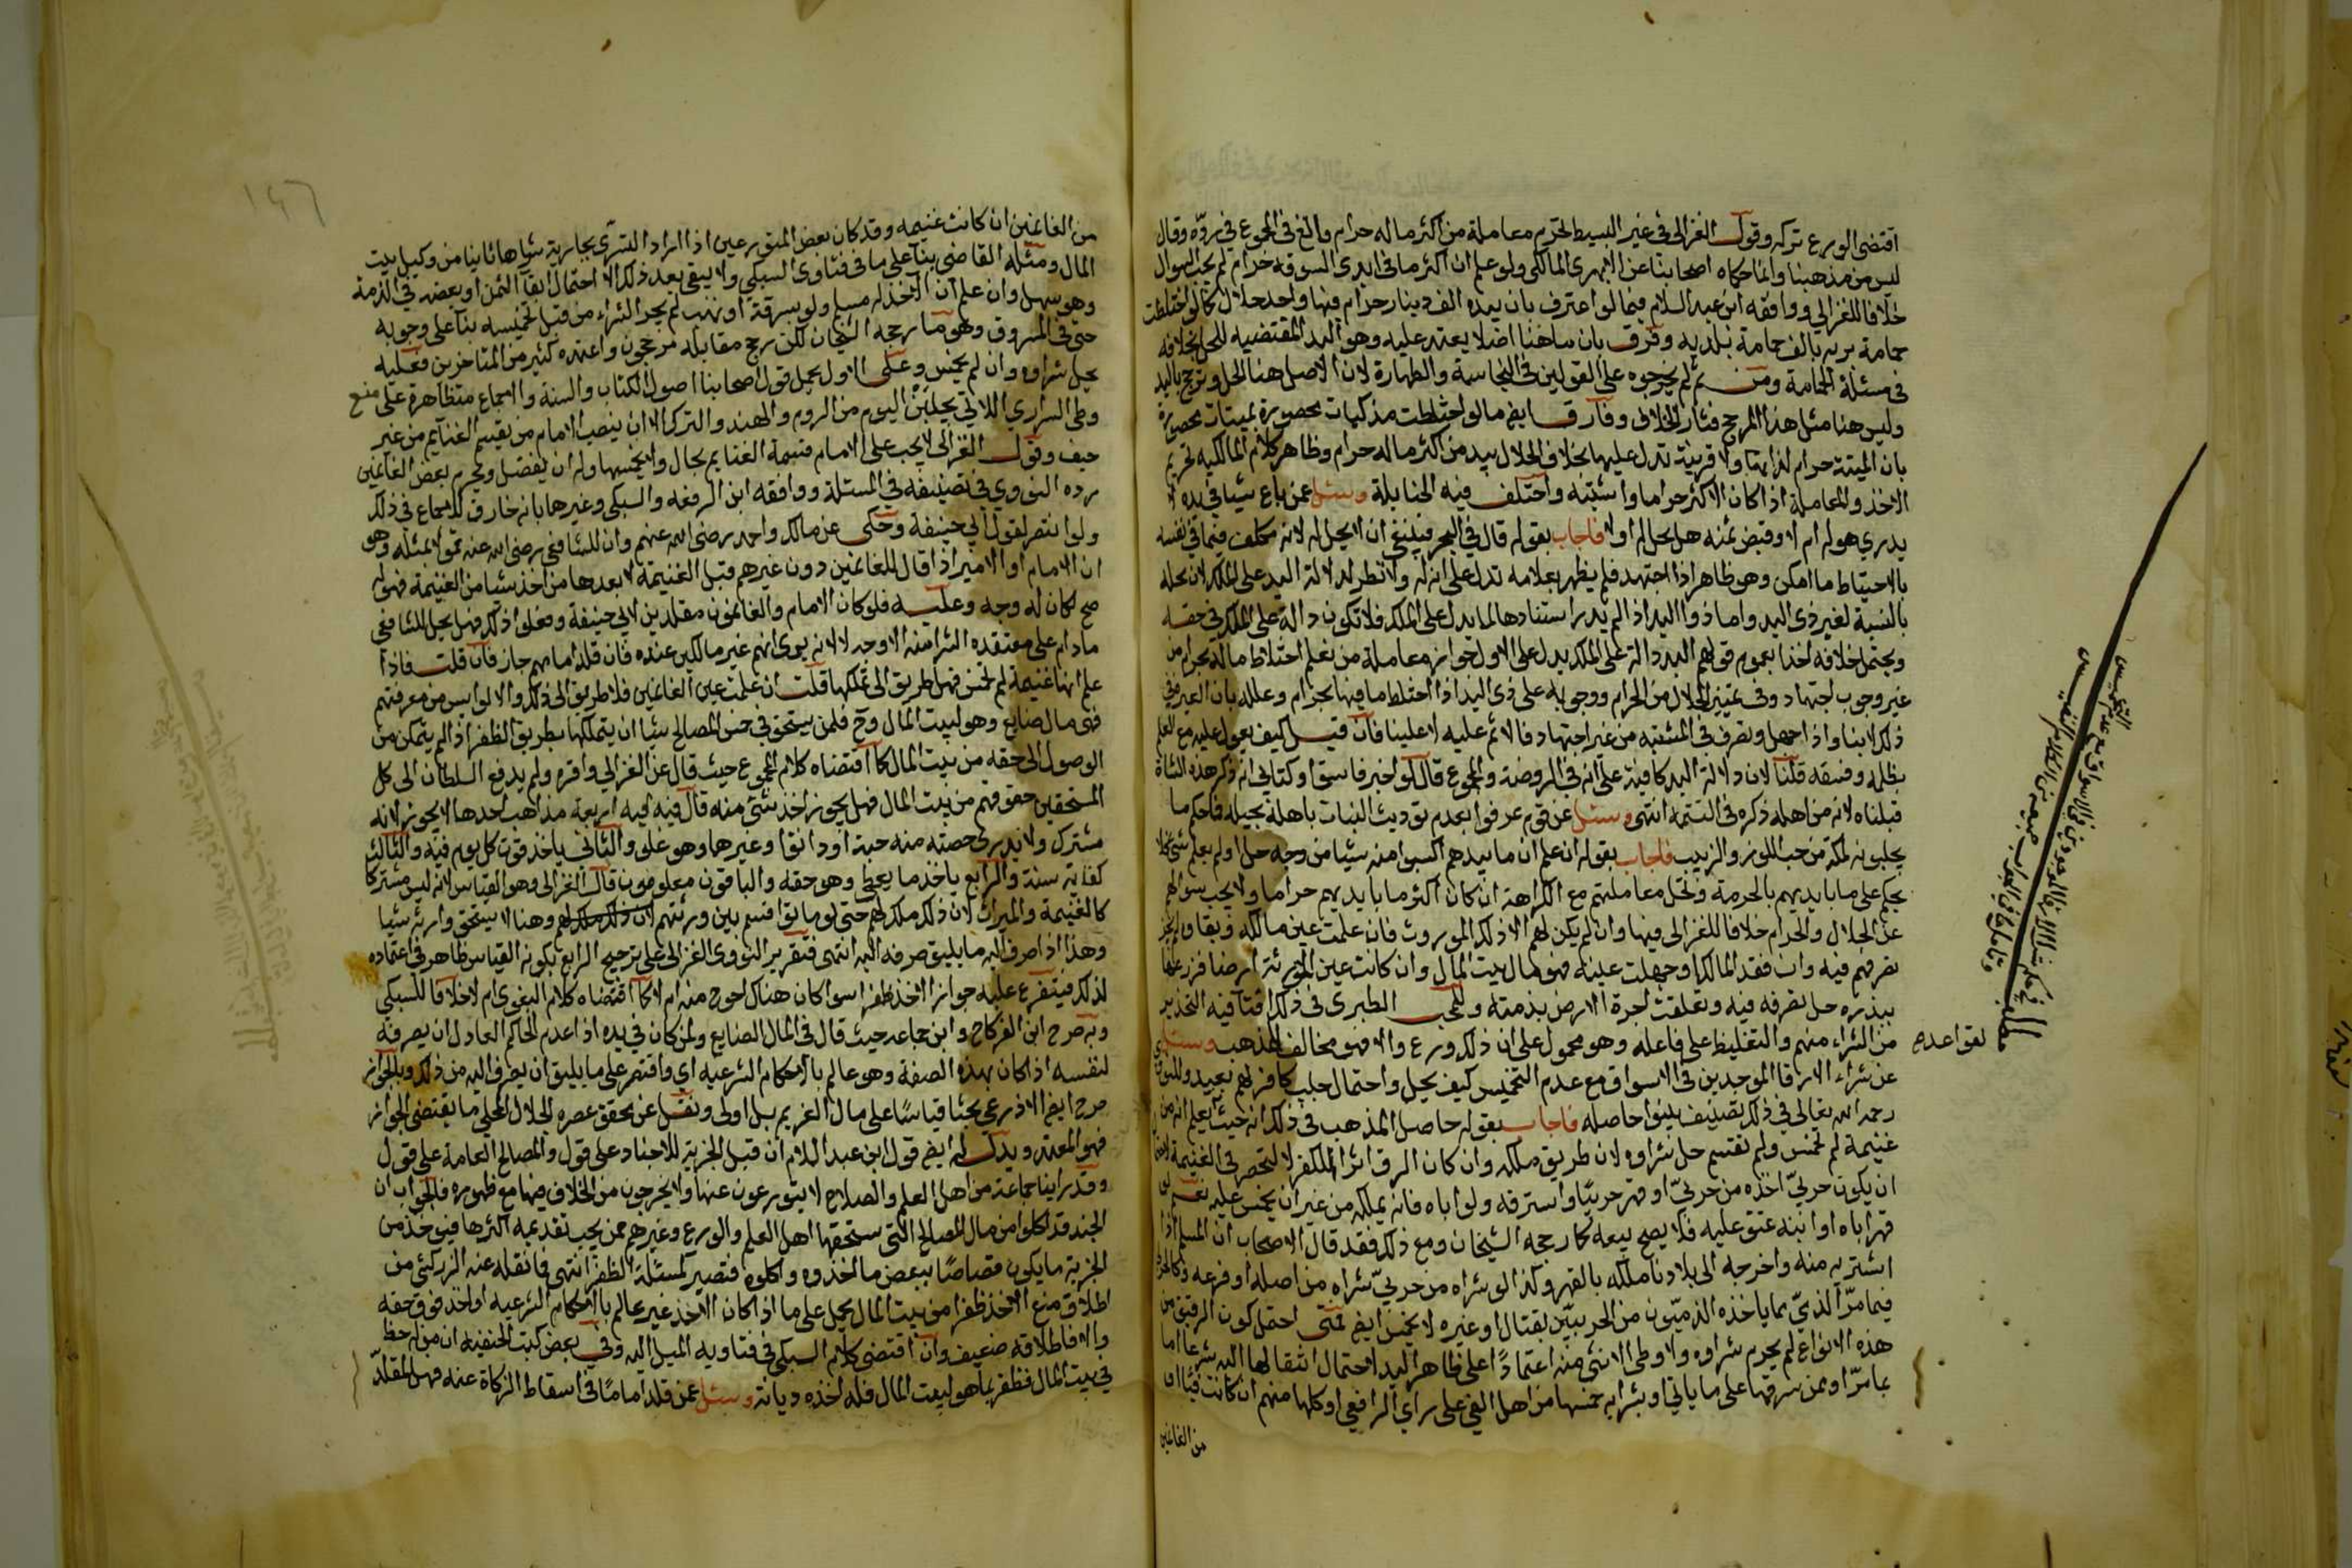 اقتضى الورع تركه وقول الغزالي في غير البسيط يحرم معاملة من أكثر ماله حرام وبالغ في المجموع في رده وقال
ليس من مذهبنا وانما حكاه اصحابنا عن الابهري المالكي ولو علم ان اكثر ما في ايدي السوقة حرام لم يجب السوال
خلافا للغزالي ووافقه ابن عبد السلام فيما لو اعترف بان بيده الف دينار حرام فيها واحد حلال كما لو اختلطت
حمامة برية بالف حمامة بلدية وفرق بان ما هنا اصلا يعتمد عليه وهو اليد المقتضيه للحل بخلافه
في مسئلة الحمامة ومن ثم لم يخرجوه على القولين في النجاسة والطهارة لان الاصل هنا الحل وترجح باليد
وليس هنا مثل هذا المرجح فثار الخلاف وفارق ايضا ما لو اختلطت مذكيات محصورة بميتات محصورة
بان الميتة حرام لذاتها ولا قرينة تدل عليها بخلاف الحلال بيد من اكثر ماله حرام وظاهر كلام المالكيه تحريم
الاخذ والمعاملة اذا كان الاكثر حراما واشتبه واختلف فيه الحنابلة وسئل عمن باع شيا في يده لا
يدري هو له ام لا وقبض ثمنه هل يحل له او لا فاجاب بقوله قال في البحر فينبغي ان لا يحل له لانه مكلف فيما في نفسه
بالاحتياط ما امكن وهو ظاهر اذا اجتهد فلم يظهر بعلامه تدل على انه له ولا نظر لدلالة اليد على الملك لان محله
بالنسبة لغير ذي اليد واما ذو اليد اذا لم يدر استنادها لما يدل على الملك فلا تكون دالة على الملك في حقه
ويحتمل خلافه اخذا بعموم قولهم اليد دالة على الملك يدل على الاول جواز معاملة من نعلم اختلاط ماله بحرام من
غير وجوب اجتهاد وفي تمييز الحلال من الحرام ووجوبه على ذي اليد اذا اختلط ما فيها بحرام وعلله بان العبرة في
ذلك لا بنا واذا جهل وتصرف في المشتبه من غير اجتهاد فالاثم عليه لا علينا فان قيل كيف يعول عليه مع العلم
بظلمه وفسقه قلنا لان دلالة اليد كافية على انه في الروضة والمجموع قال لو اخبر فاسق او كتابي انه ذكى هذه الشاة
قبلناه لانه من اهله ذكره في التتمة انتهى وسئل عن قوم عرفوا بعدم توريث البنات باهلة بجيله فاحكم ما
يجلبونه لمكة من حب اللوز والزبيب فاجاب بقوله ان علم ان ما بيدهم اكتسبوا منه شيئا من وجه حل او لم يعلم شي فلا
يحكم على ما بايديهم بالحرمة وتحل معاملتهم مع الكراهة ان كان اكثر ما بايديهم حراما ولا يجب سوالهم
عن الحلال والحرام خلافا للغزالي فيها وان لم يكن لهم الا ذلك الموروث فان علمت عين مالكه وبقاوه لم يجز
تصرفهم فيه وان فقد المالك او جهلت عينه فهو مال بيت المال وان كانت عين المورثة ارضا فزرعها
ببذره حل تصرفه فيه وتعلقت اجرة الارض بذمته وللمحب الطبري في ذلك افتا فيه التحذير
من الشراء منهم والتغليظ على فاعله وهو محمول على ان ذلك ورع والا فهو مخالف للمذهب وسئل
لقواعده
عن شراء الارقا الموجدين في الاسواق مع عدم التخميس كيف يحل واحتمال جلب كافر لهم بعيد وللنووي
رحمه الله تعالى في ذلك تصنيف بينوا حاصله فاجاب بقوله حاصل المذهب في ذلك انه حيث لم يعلم انه من
غنيمة لم تخمس ولم تقسم حل شراوه لان طريق ملكه وان كان الرق اثر الكفر لا تنحصر في الغنيمة لاحتمال
ان يكون حربي اخذه من حربي او قهر حربيا واسترقه ولو اباه فانه يملكه من غير ان يخمس عليه نعم لو
قهر اباه او ابنه عتق عليه فلا يصح بيعه كما رجحه الشيخان ومع ذلك فقد قال الاصحاب ان المسلم اذا
اشتريه منه واخرجه الى بلادنا ملكه بالقهر وكذا لو شراه من حربي شراه من اصله او فرعه وكالحربي
فيما مر الذمي بما ياخذه الذميون من الحربيين بقتال او غيره لا يخمس ايضا فمتى احتمل كون الرقيق من
هذه الانواع لم يحرم شراوه ولا وطي الانثى منه اعتمادا على ظاهر اليد لاحتمال انتقالها اليه شرعا اما
بما مر او بمن سرقها على ما ياتي او بشرايه خمسها من اهل الفي على راي الرافعي او كلها منهم ان كانت فيئا او
من الغانمين
مطلب
في حكم شراء الارقا الموجودين في الاسواق مع عدم التخميس
١٤٦
من الغانمين ان كانت غنيمه وقد كان بعض المتورعين اذا اراد التسري بجارية شراها ثانيا من وكيل بيت
المال ومثله القاضي بنا على ما في فتاوي السبكي ولا يبقى بعد ذلك الا احتمال بقا الثمن او بعضه في الذمة
وهو سهل وان علم ان الاخذ له مسلم ولو بسرقة او نهب لم يجز الشراء من قبل تخميسه بنا على وجوبه
حتى في المسروق وهو ما رجحه الشيخان لكن رجح مقابله مرجحون واعتمده كثير من المتاخرين فعليه
يحل شراوه وان لم يخمس وعلى الاول يحمل قول اصحابنا اصول الكتاب والسنة والاجماع متظاهرة على منع
وطي السراري اللاتي يجلبن اليوم من الروم والهند والترك الا ان ينصب الامام من يقسم الغنايم من غير
حيف وقول الغزالي لا يجب على الامام قسمة الغنايم بحال ولا يخمسها وله ان يفضل ويحرم بعض الغانمين
رده النووي في تصنيفه في المسئلة ووافقه ابن الرفعة والسبكي وغيرها بانه خارق للاجماع في ذلك
ولو انتصر لقول ابي حنيفة وحكى عن مالك واحمد رضي الله عنهم وان للشافعي رضي الله عنه قولا بمثله وهو
ان الامام او الامير اذا قال للغانمين دون غيرهم قبل الغنيمة لا بعدها من اخذ شيا من الغنيمة فهو له
صح لكان له وجه وعليه فلو كان الامام والغانمون مقلدين لابي حنيفة وفعلوا ذلك فهل يحل للشافعي
ما دام على معتقده الشرا منه الاوجه لا لانه يرى انهم غير مالكين عنده فان قلد امامهم جاز فان قلت فاذا
علم انها غنيمة لم تخمس فهل طريق الى تملكها قلت ان علمت عين الغانمين فلا طريق الى ذلك والا لو ايس من معرفتهم
فهو مال ضايع وهو لبيت المال وح فلمن يستحق في خمس المصالح شيا ان يتملكها بطريق الظفر اذا لم يتمكن من
الوصول الى حقه من بيت المال كما اقتضاه كلام المجموع حيث قال عن الغزالي واقره ولم يدفع السلطان الى كل
المستحقين حقوقهم من بيت المال فهل يجوز اخذ شي منه قال فيه اربعة مذاهب احدها لا يجوز لانه
مشترك ولا يدري حصته منه حبة او دانقا وغيرهما وهو غلو والثاني ياخذ قوت كل يوم فيه والثالث
كفاية سنة والرابع ياخذ ما يعطى وهو حقه والباقون معلومون قال الغزالي وهو القياس لانه ليس مشتركا
كالغنيمة والميراث لان ذلك ملك لهم حتى لو ماتوا قسم بين ورثتهم وهنا لا يستحق وارثه شيا
وهذا اذا صرف اليه ما يليق صرفه اليه انتهى فتقرير النووي الغزالي على ترجيح الرابع بكونه القياس ظاهر في اعتماده
لذلك فيتفرع عليه جواز الاخذ ظفرا سوا كان هناك احوج منه ام لا كما اقتضاه كلام البغوي ام لا خلافا للسبكي
وبه صرح ابن الفركاح وابن جماعه حيث قال في المال الضايع ولمن كان في يده اذا عدم الحاكم العادل ان يصرفه
لنفسه اذا كان بهذه الصفة وهو عالم بالاحكام الشرعيه اي واقتصر على ما يليق ان يصرف اليه من ذلك وبالجواز
صرح ايضا الاذرعي بحثا قياسا على مال الغريم بل اولى ونقل عن محقق عصره الجلال المحلي ما يقتضي الجواز
فهو المعتمد ويدل له ايضا قول ابن عبد السلام ان قبل الجزية للاجناد على قول والمصالح العامة على قول
وقد راينا جماعة من اهل العلم والصلاح لا يتورعون عنها ولا يخرجون من الخلاف فيها مع ظهوره فالجواب ان
الجند قد اكلوا من مال المصالح التي ستحقها اهل العلم والورع وغيرهم ممن يجب تقديمه اكثرها فيوخذ من
الجزية ما يكون قصاصا ببعض ما اخذوه واكلوه فتصير كمسئلة الظفر انتهى فما نقله عنه الزركشي من
اطلاق منع الاخذ ظفرا من بيت المال يحمل على ما اذا كان الاخذ غير عالم بالاحكام الشرعيه او اخذ فوق حقه
والا فاطلاقه ضعيف وان اقتضى كلام السبكي في فتاويه الميل اليه وفي بعض كتب الحنفيه ان من له حظ
في بيت المال فظفر بما هو لبيت المال فله اخذه ديانة وسئل عمن قلد اماما في اسقاط الزكاة عنه فهل للمقلد